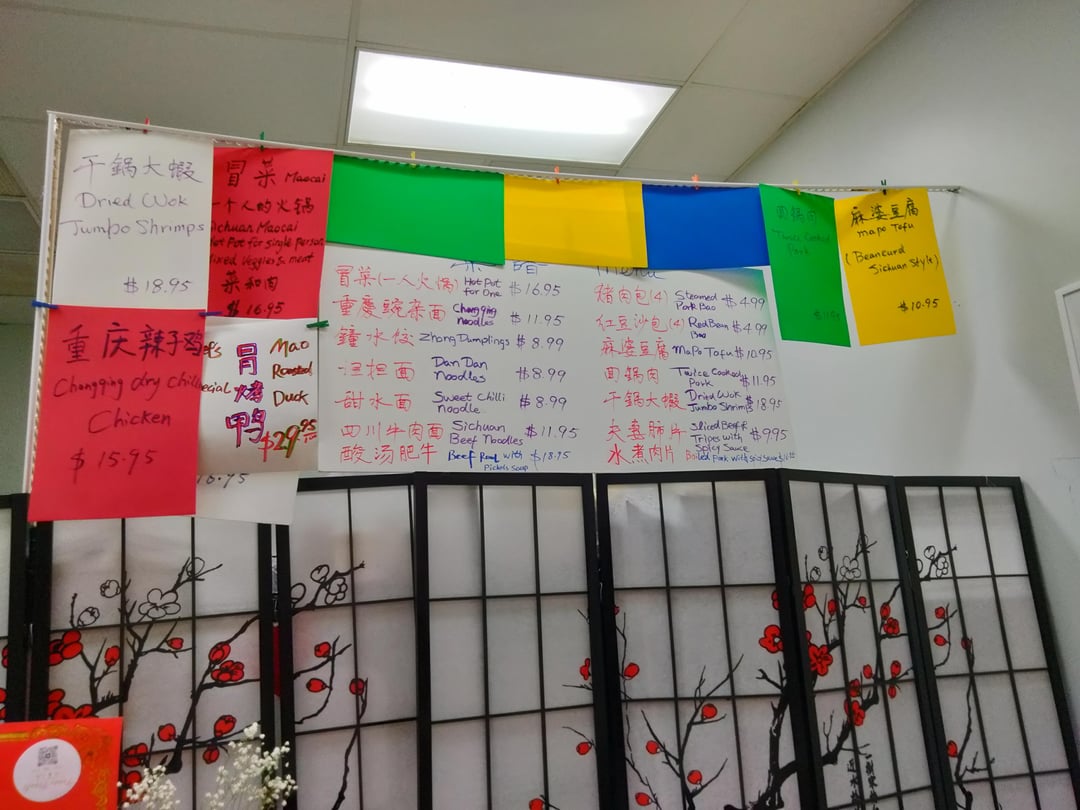 干鍋大蝦
Dried Wok
Jumbo Shrimps
$18.95
冒菜 Maocai
一个人的火锅
Sichuan Maocai
Hot Pot for single person
Mixed Veggies & meat
菜和肉
$16.95
重庆辣子鸡
Chongqing dry chilli
Chicken
$15.95
冒烤鸭
Mao
Roasted
Duck
$29.95
菜
Menu
冒菜(一人火锅) Hot Pot for One $16.95
重慶豌杂面 Chongqing noodles $11.95
鐘水饺 Zhong Dumplings $8.99
担担面 Dan Dan Noodles $8.99
甜水面 Sweet Chilli Noodle $8.99
四川牛肉面 Sichuan Beef Noodles $11.95
酸汤肥牛 Beef with Pickels Soup $18.95
烤肉包(4) Steamed Pork Bao $4.99
红豆沙包(4) Red Bean Bao $4.99
麻婆豆腐 MaPo Tofu $10.95
回鍋肉 Twice Cooked Pork $11.95
干鍋大蝦 Dried Wok Jumbo Shrimps $18.95
夫妻肺片 Sliced Beef & Tripes with Spicy Sauce $9.95
水煮肉片 Boiled Pork with
回鍋肉
Twice Cooked
Pork
麻婆豆腐
mapo Tofu
(Beancurd
Sichuan Style)
$10.95